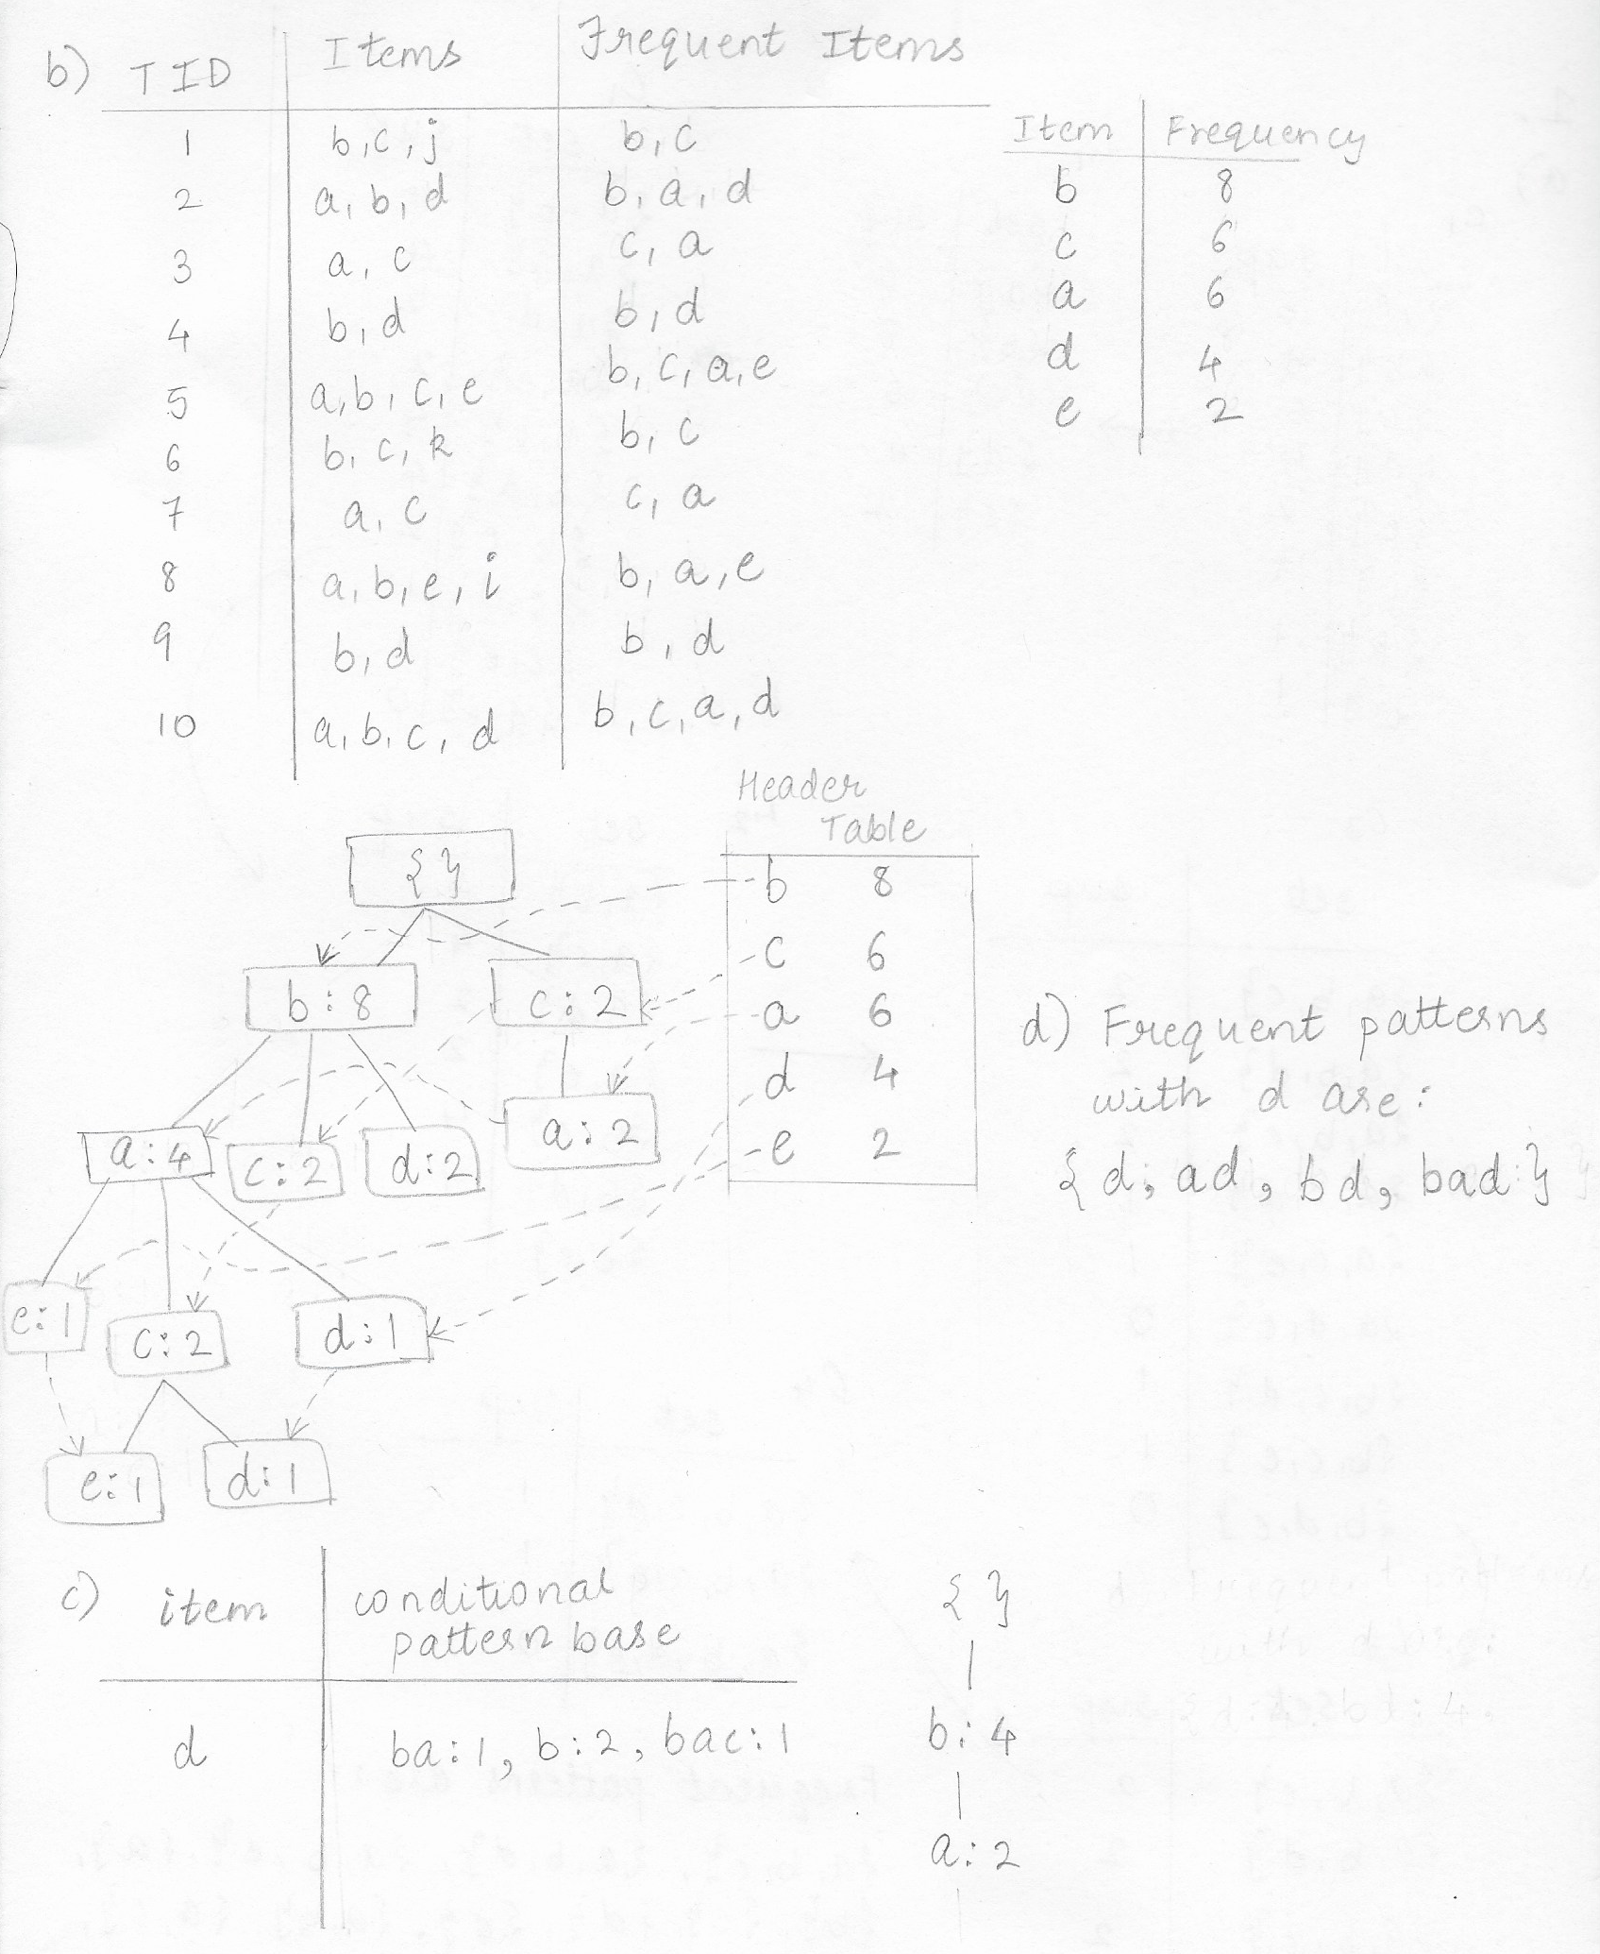 b) TID Items Frequent Items
1 b,c,j b,c
2 a,b,d b,a,d
3 a,c c,a
4 b,d b,d
5 a,b,c,e b,c,a,e
6 b,c,k b,c
7 a,c c,a
8 a,b,e,i b,a,e
9 b,d b,d
10 a,b,c,d b,c,a,d
Item Frequency
b 8
c 6
a 6
d 4
e 2
Header
Table
b 8
c 6
a 6
d 4
e 2
{ }
b:8 c:2
a:4 c:2 d:2 a:2
e:1 c:2 d:1
e:1 d:1
d) Frequent patterns
with d are:
{d, ad, bd, bad}
c) item conditional
pattern base
d ba:1, b:2, bac:1
{ }
b:4
a:2